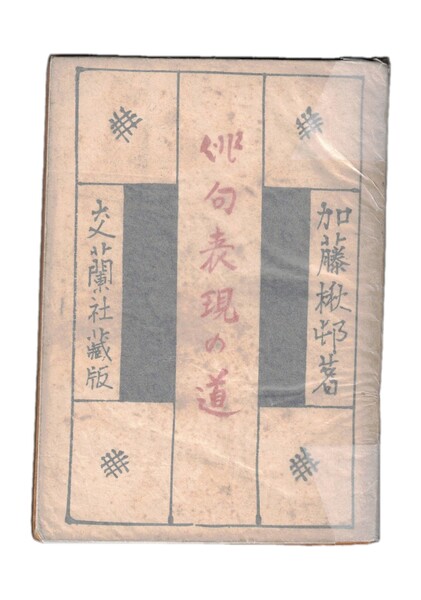 加藤楸邨著
俳句表現の道
交蘭社蔵版